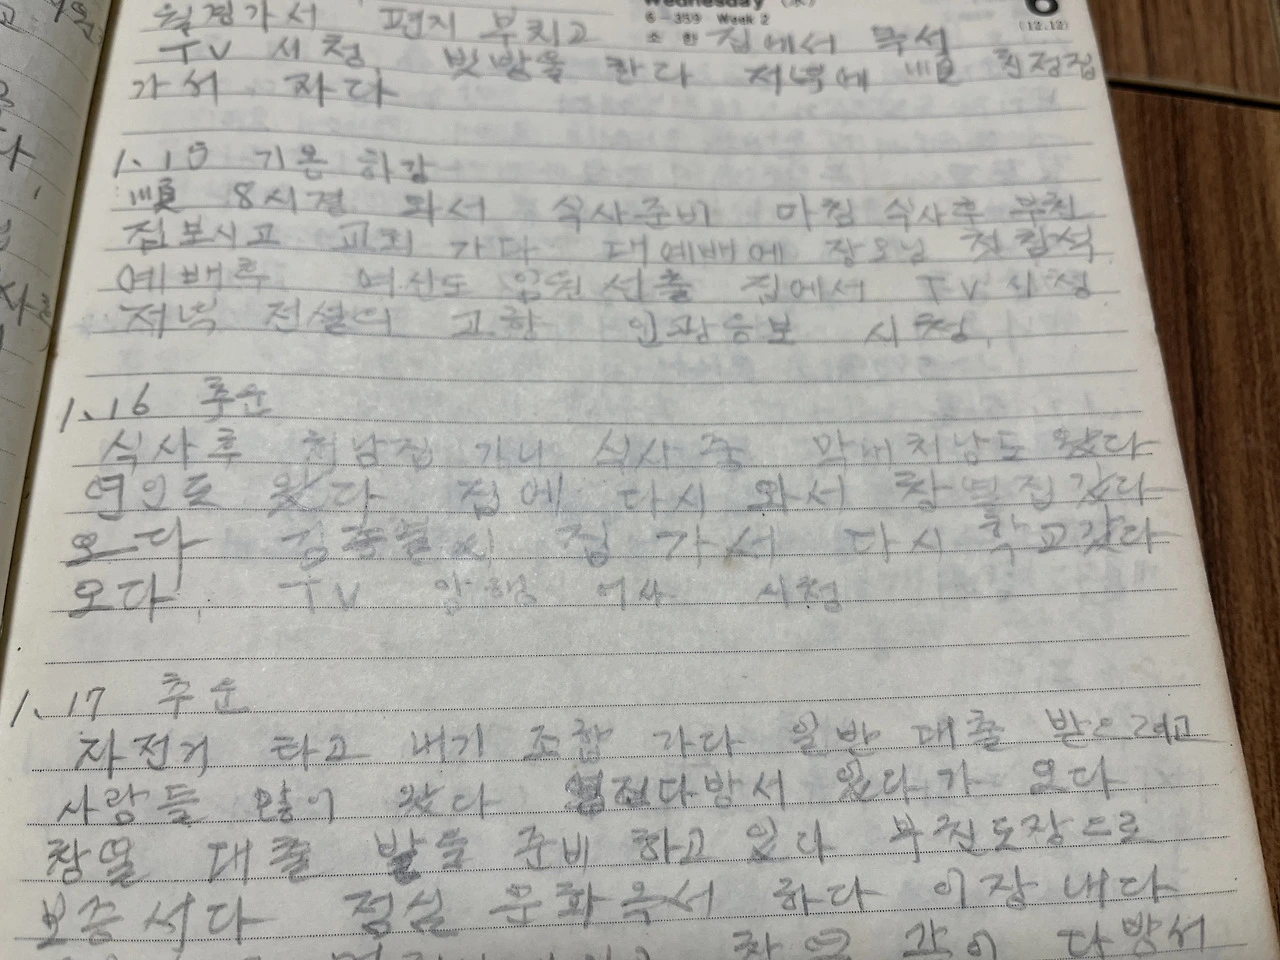 Wednesday (水)
6 - 359 Week 2
6
(12.12)
월정가서 편지 부치고 집에서 독서
TV 시청 빗방울 한다 저녁에 順 친정집
가서 자다
1. 15 기온 하강
順 8시경 와서 식사준비 아침 식사후 부친
집보시고 교회 가다 대예배에 장로님 첫참석
예배후 여신도 임원선출 집에서 TV 시청
저녁 전설의 고향 인과응보 시청
1. 16 추운
식사후 처남집 가니 식사 중 막내처남도 왔다
영인도 왔다 집에 다시 와서 창열집갔다
오다 집 가서 다시 학교갔다
오다. TV 암행 어사 시청
1. 17 추운
자전거 타고 내기 조합 가다 일반 대출 받으려고
사람들 많이 왔다 다방서 있다가 오다
창열 대출 받을 준비 하고 있다 부친도장으로
보증서다 점심 문화옥서 하다 이장 내다
같이 다방서